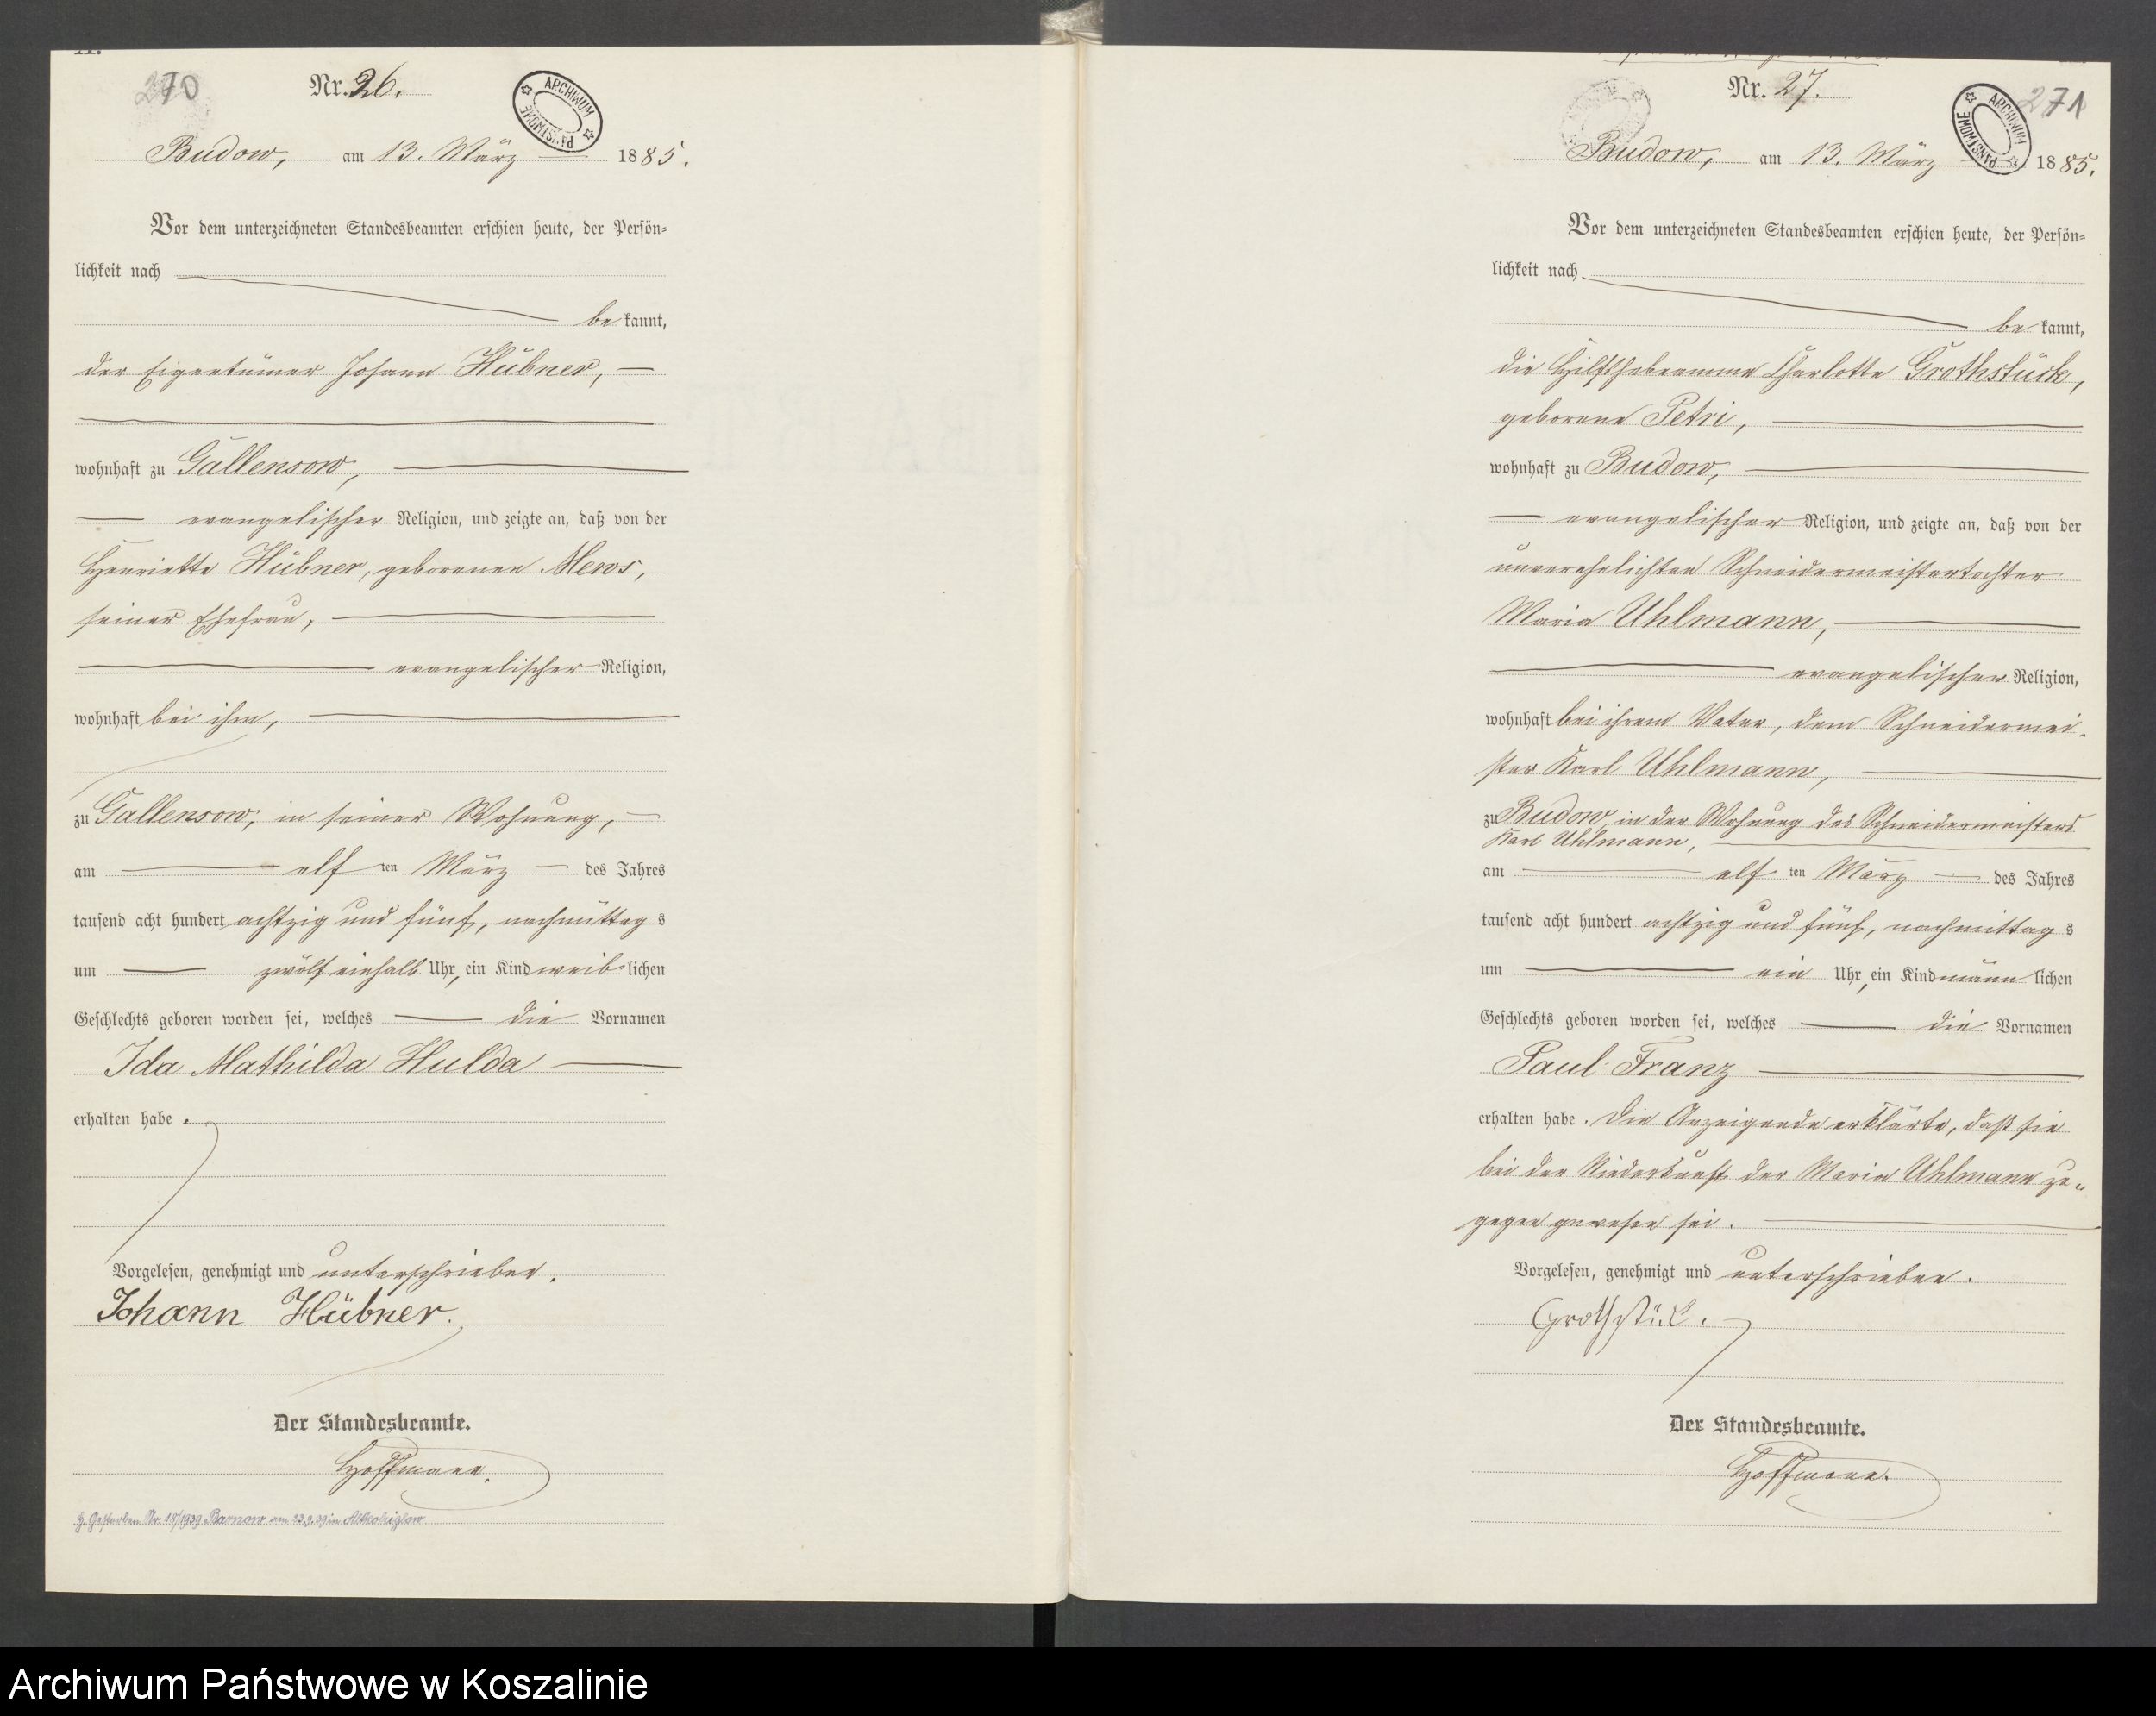 270
Nr. 26.
ARCHIWUM PAŃSTWOWE
Budow, am 13. März 1885.
Vor dem unterzeichneten Standesbeamten erschien heute, der Persön=
lichkeit nach
be kannt,
der Eigentümer Johann Hübner,
wohnhaft zu Gallensow,
evangelischer Religion, und zeigte an, daß von der
Henriette Hübner, geborenen Mews,
seiner Ehefrau,
evangelischer Religion,
wohnhaft bei ihm,
zu Gallensow, in seiner Wohnung,
am elf ten März des Jahres
tausend acht hundert achtzig und fünf, nachmittag s
um zwölf einhalb Uhr, ein Kind weib lichen
Geschlechts geboren worden sei, welches die Vornamen
Ida Mathilda Hulda
erhalten habe.
Vorgelesen, genehmigt und unterschrieben.
Johann Hübner.
Der Standesbeamte.
Hoffmann.
Gestorben Nr. 18/1939 Barnow am 23.9.39 in
Nr. 27.
271
ARCHIWUM PAŃSTWOWE
Budow, am 13. März 1885.
Vor dem unterzeichneten Standesbeamten erschien heute, der Persön=
lichkeit nach
be kannt,
die Hilfshebeamme Charlotte Grothstück,
geborene Petri,
wohnhaft zu Budow,
evangelischer Religion, und zeigte an, daß von der
unverehelichten Schneidermeistertochter
Maria Uhlmann,
evangelischer Religion,
wohnhaft bei ihrem Vater, dem Schneidermei-
ster Karl Uhlmann,
zu Budow, in der Wohnung des Schneidermeisters
Karl Uhlmann,
am elf ten März des Jahres
tausend acht hundert achtzig und fünf, nachmittag s
um ein Uhr, ein Kind männ lichen
Geschlechts geboren worden sei, welches die Vornamen
Paul Franz
erhalten habe. Die Anzeigende erklärte, daß sie
bei der Niederkunft der Maria Uhlmann zu-
gegen gewesen sei.
Vorgelesen, genehmigt und unterschrieben.
Grothstück.
Der Standesbeamte.
Hoffmann.
Archiwum Państwowe w Koszalinie